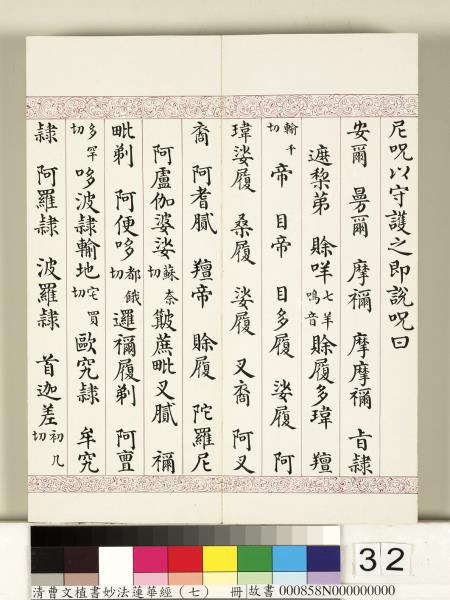 尼呪以守護之即說呪曰
安爾　曼爾　摩禰　摩摩禰　旨隸
遮棃第　賒咩七羊鳴音賒履多瑋　羶
輸千切帝　目帝　目多履　娑履　阿
瑋娑履　桑履　娑履　叉裔　阿叉
裔　阿耆膩　羶帝　賒履　陀羅尼
阿盧伽婆娑蘇奈切簸蔗毗叉膩　禰
毗剃　阿便哆都餓切邏禰履剃　阿亶
多罕切哆波隸輸地宅買切歐究隸　牟究
隸　阿羅隸　波羅隸　首迦差初几切
32
清曹文植書妙法蓮華經（七）　冊 故書 000858N000000000